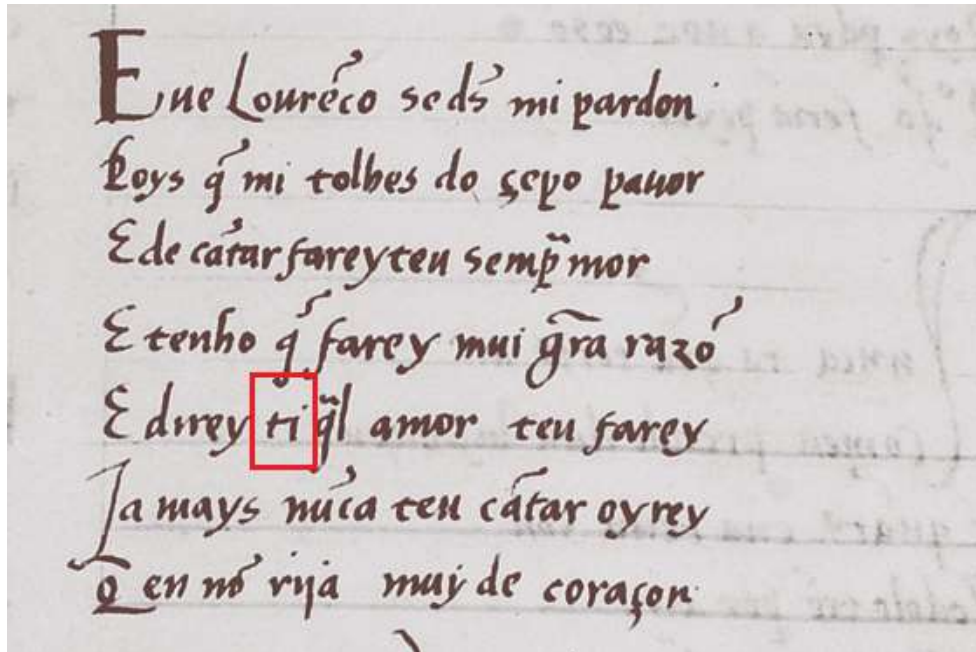 Eue Lourẽco se ds̃ mi pardon
Poys q̃ mi tolhes do çepo pauor
E de cãtar farey teu semp̃ mor
E tenho q̃ farey mui gr̃a razõ
E direy ti q̃l amor teu farey
Ja mays nũca teu cãtar oyrey
Q̃ en nõ rija muy de coraçon